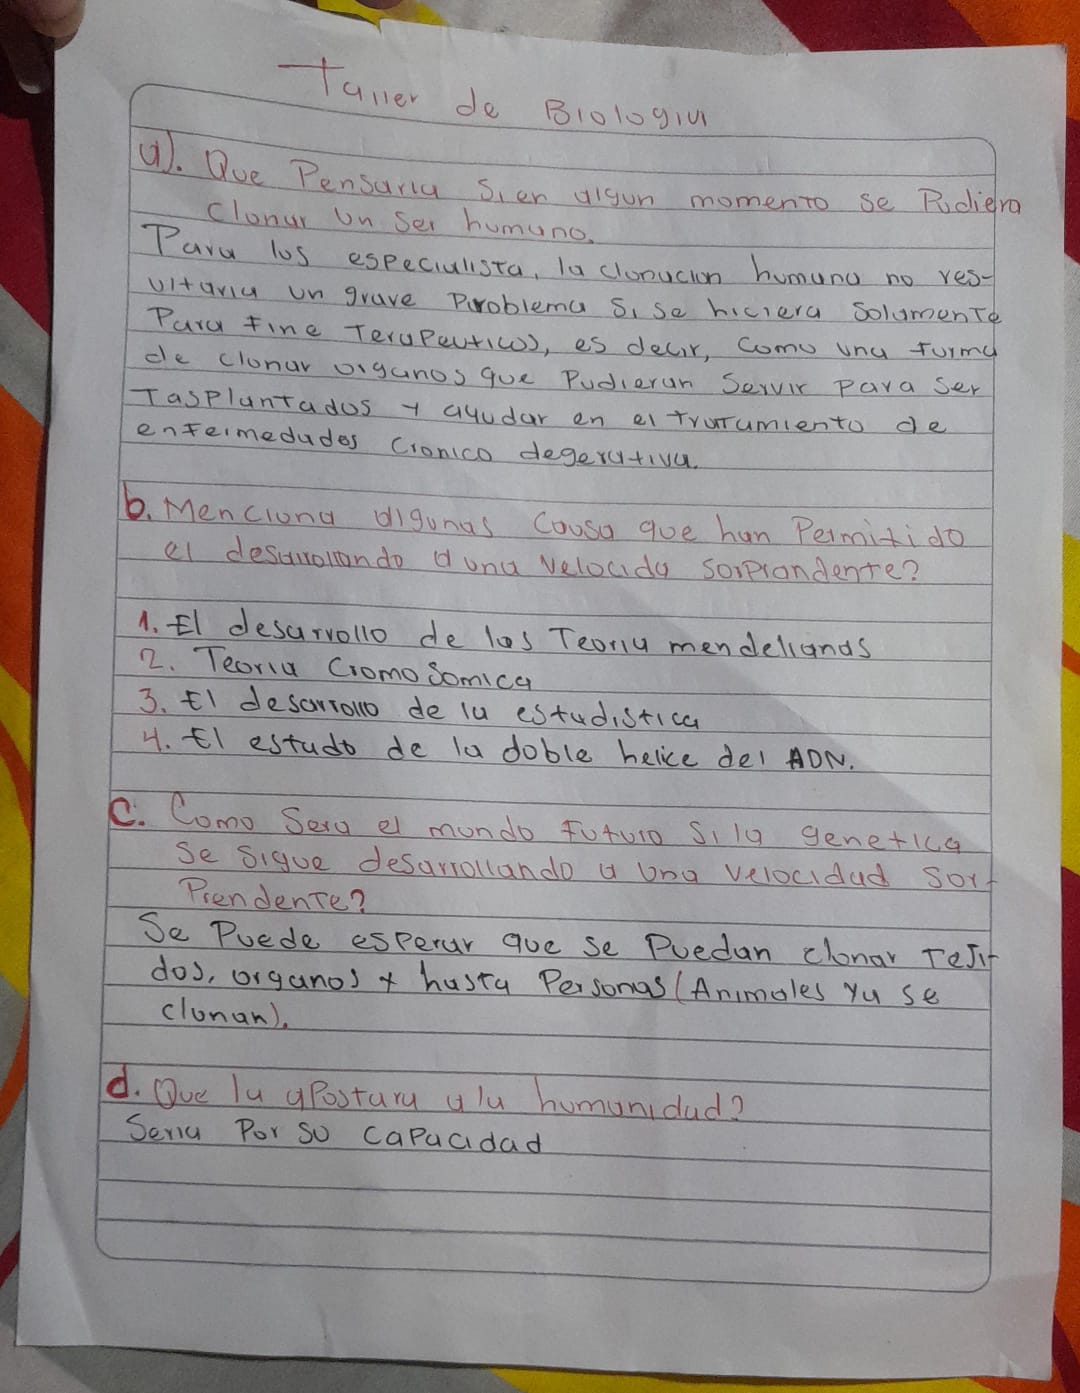 Taller de Biologia
a). Que Pensaria Si en algun momento se Pudiera
Clonar Un Ser humano.
Para los especialista, la clonacion humana no res-
ultaria un grave Problema Si se hiciera Solamente
Para fine Terapeuticos, es decir, Como una forma
de clonar organos que Pudieran Servir para ser
Tasplantados y ayudar en el tratamiento de
enfermedades Cronico degerativa.
b. Menciona algunas Causa que han Permitido
el desarrollando a una Velocida Sorprandente?
1. El desarrollo de las Teoria mendelianas
2. Teoria Cromosomica
3. El desarrollo de la estadistica
4. El estado de la doble helice del ADN.
C. Como Sera el mundo Futuro Si la genetica
Se Sigue desarrollando a Una velocidad Sor-
Prendente?
Se Puede esperar que se Puedan clonar Teji-
dos, organos y hasta Personas (Animales ya se
clonan).
d. Que la apostara a la humanidad?
Seria Por su capacidad